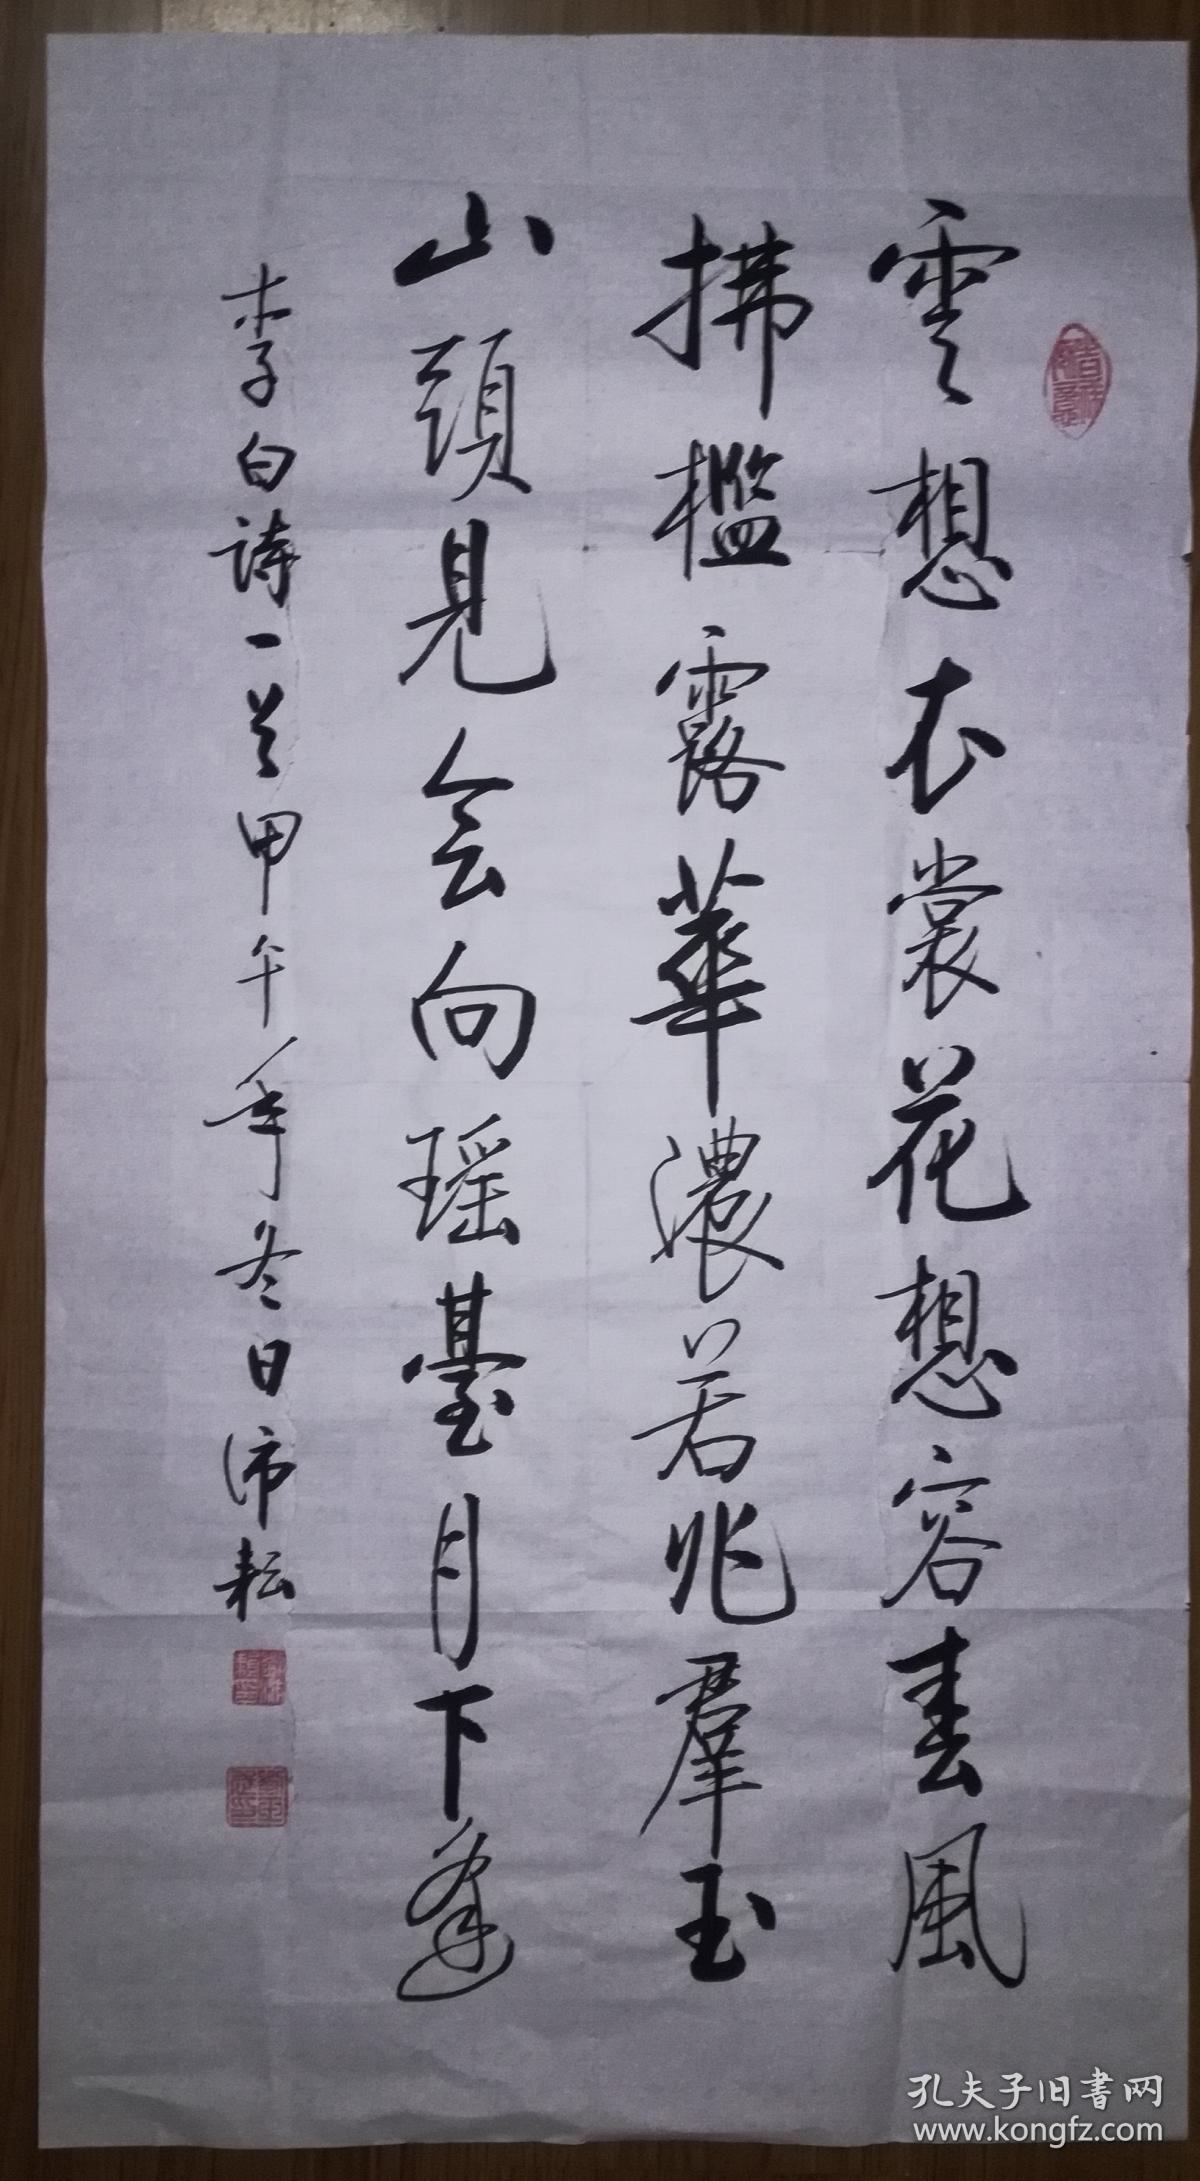 雲想衣裳花想容春風
拂檻露華濃若非羣玉
山頭見会向瑶臺月下逢
李白詩一首甲午年冬日沛耘
孔夫子旧書网
www.kongfz.com